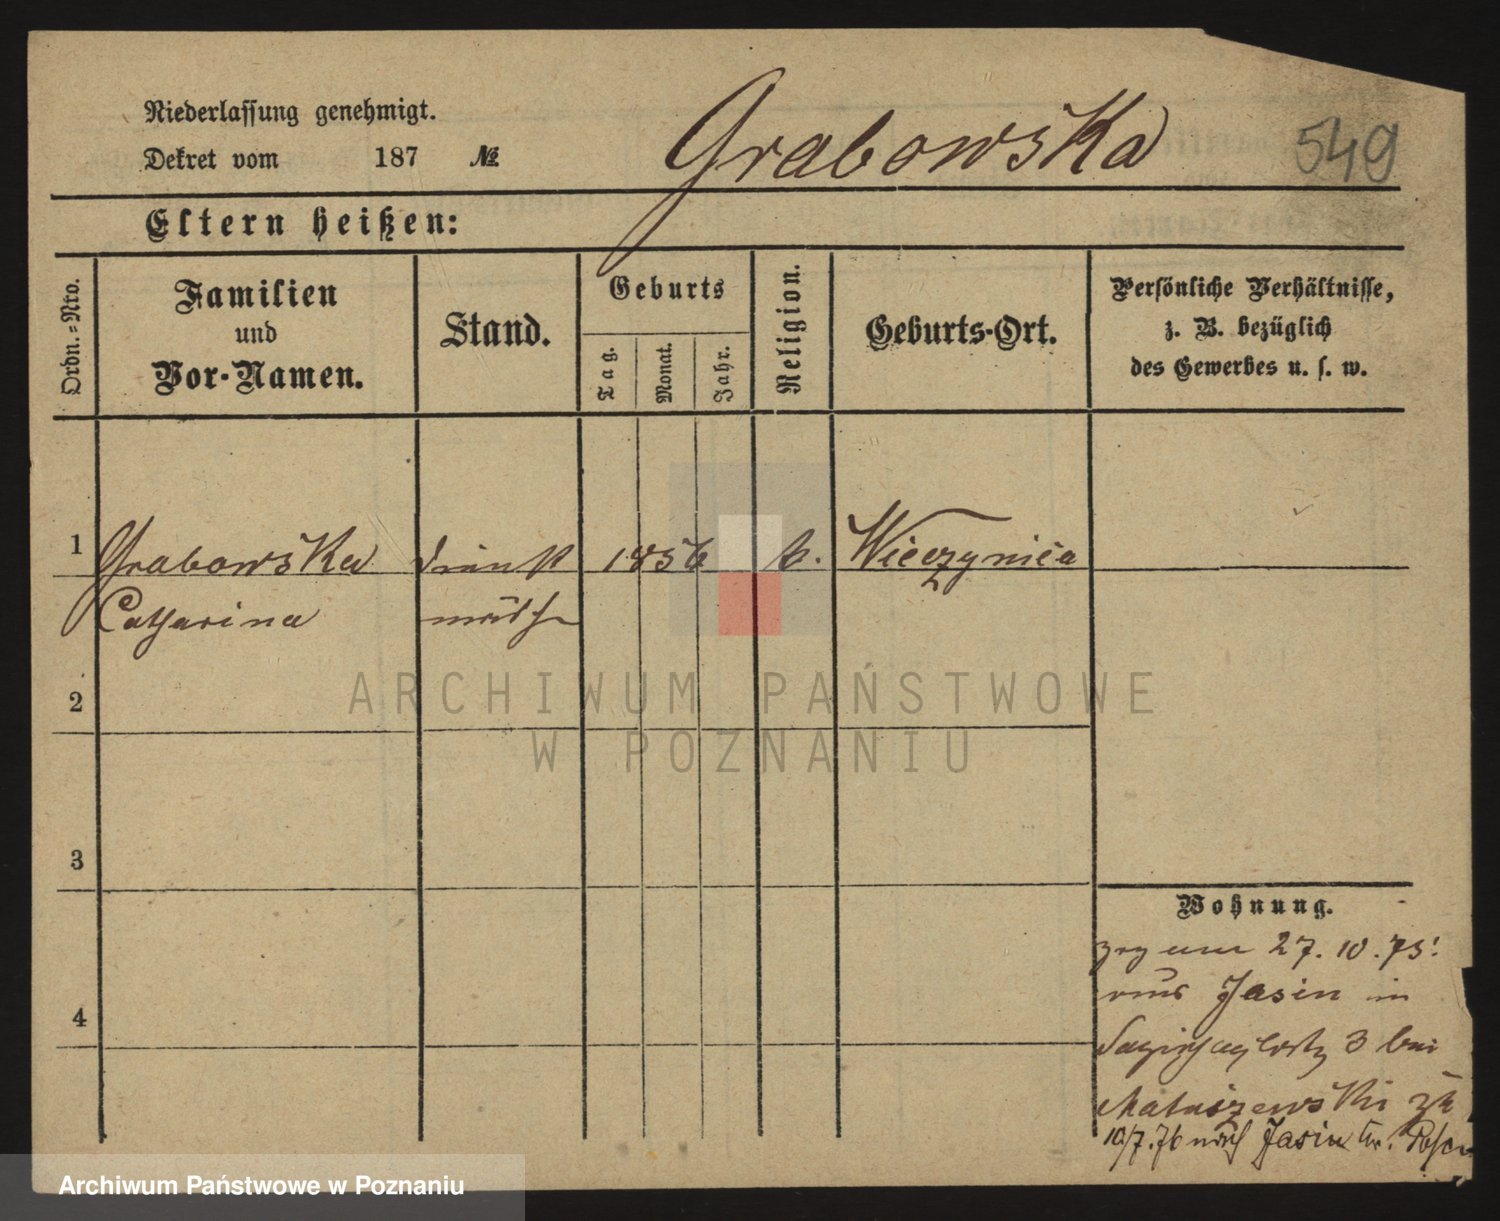 Niederlassung genehmigt.
Dekret vom 187 №
Grabowska
549
Eltern heißen:
Ordn.=Nro.
Familien
und
Vor-Namen.
Stand.
Geburts
Tag.
Monat.
Jahr.
Religion.
Geburts-Ort.
Persönliche Verhältnisse,
z. B. bezüglich
des Gewerbes u. s. w.
1
Grabowska
Catharina
Dienst
mädch
1856
k.
Wieczynica
2
3
4
Wohnung.
zog am 27.10.75.
aus Jasin in
3 bei
Matuszewski
10/7.76 nach Jasin Kr. Posen
ARCHIWUM PAŃSTWOWE
W POZNANIU
Archiwum Państwowe w Poznaniu